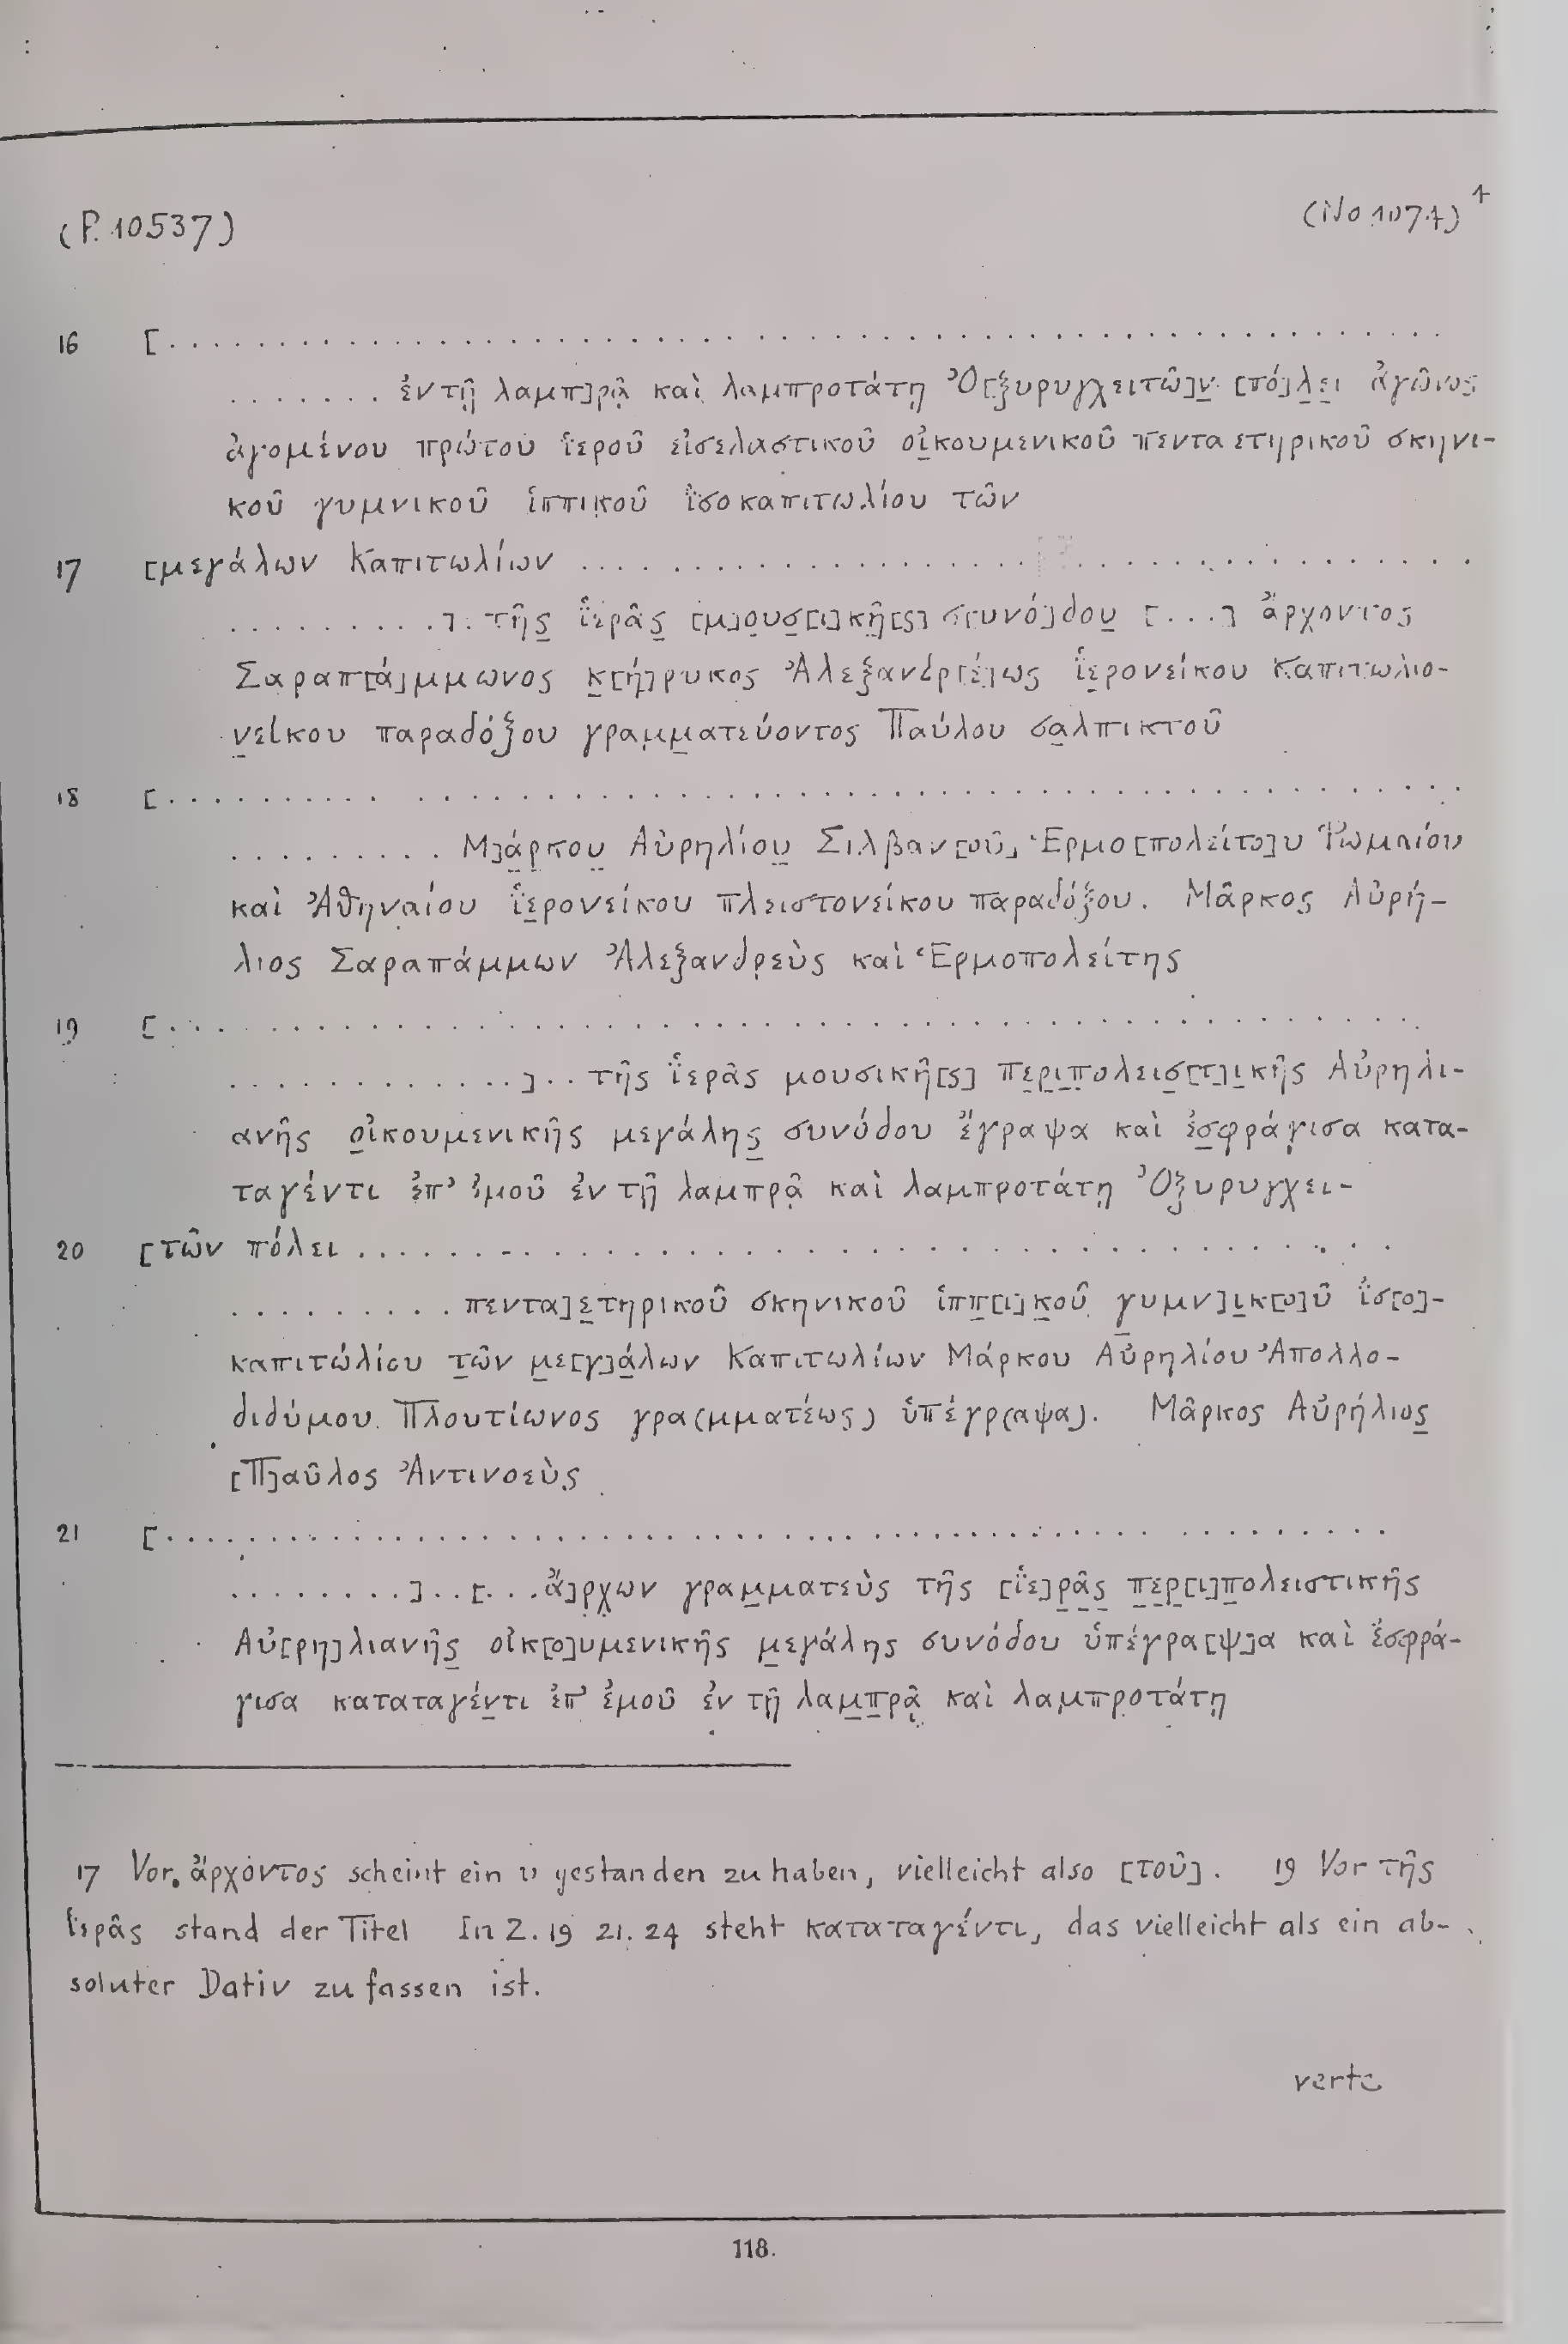 (P. 10537) (No 1074)
16 [. . . . . . . . . . . . . . . . . . . . . . . . . . . . . . . . . . . . . . . .
. . . . . . . ἐν τῇ λαμπ]ρᾷ καὶ λαμπροτάτῃ Ὀ[ξυρυγχειτῶ]ν [πό]λει ἀγῶνος
ἀγομένου πρώτου ἱεροῦ εἰσελαστικοῦ οἰκουμενικοῦ πενταετηρικοῦ σκηνι-
κοῦ γυμνικοῦ ἱππικοῦ ἰσοκαπιτωλίου τῶν
17 [μεγάλων Καπιτωλίων . . . . . . . . . . . . . . . . . . . . . . . . . . . . . .
. . . . . . . . . ]. τῆς ἱερᾶς [μ]ουσ[ι]κῆ[ς] σ[υνό]δου [. . .] ἄρχοντος
Σαραπ[ά]μμωνος κ[ή]ρυκος Ἀλεξανδρ[έ]ως ἱερονείκου Καπιτωλιο-
νείκου παραδόξου γραμματεύοντος Παύλου σαλπικτοῦ
18 [. . . . . . . . . . . . . . . . . . . . . . . . . . . . . . . . . . . . . . . .
. . . . . . . . . Μ]άρκου Αὐρηλίου Σιλβαν[οῦ] Ἑρμο[πολείτο]υ Ῥωμαίου
καὶ Ἀθηναίου ἱερονείκου πλειστονείκου παραδόξου. Μᾶρκος Αὐρή-
λιος Σαραπάμμων Ἀλεξανδρεὺς καὶ Ἑρμοπολείτης
19 [. . . . . . . . . . . . . . . . . . . . . . . . . . . . . . . . . . . . . . . .
. . . . . . . . . . . . ]. . τῆς ἱερᾶς μουσικῆ[ς] περιπολεισ[τ]ικῆς Αὐρηλι-
ανῆς οἰκουμενικῆς μεγάλης συνόδου ἔγραψα καὶ ἐσφράγισα κατα-
ταγέντι ἐπ’ ἐμοῦ ἐν τῇ λαμπρᾷ καὶ λαμπροτάτῃ Ὀξυρυγχει-
20 [τῶν πόλει . . . . . . . . . . . . . . . . . . . . . . . . . . . . . . . . . .
. . . . . . . . . πεντα]ετηρικοῦ σκηνικοῦ ἱππ[ι]κοῦ γυμν]ικ[ο]ῦ ἰσ[ο]-
καπιτώλίου τῶν με[γ]άλων Καπιτωλίων Μάρκου Αὐρηλίου Ἀπολλο-
διδύμου Πλουτίωνος γρα(μματέως) ὑπέγρ(αψα). Μᾶρκος Αὐρήλιος
[Π]αῦλος Ἀντινοεὺς
21 [. . . . . . . . . . . . . . . . . . . . . . . . . . . . . . . . . . . . . . . .
. . . . . . . . ]. . [. . . ἄ]ρχων γραμματεὺς τῆς [ἱε]ρᾶς περ[ι]πολειστικῆς
Αὐ[ρη]λιανῆς οἰκ[ο]υμενικῆς μεγάλης συνόδου ὑπέγρα[ψ]α καὶ ἐσφρά-
γισα καταταγέντι ἐπ’ ἐμοῦ ἐν τῇ λαμπρᾷ καὶ λαμπροτάτῃ
17 Vor ἄρχοντος scheint ein υ gestanden zu haben, vielleicht also [τοῦ]. 19 Vor τῆς
ἱερᾶς stand der Titel In Z. 19 21. 24 steht καταταγέντι, das vielleicht als ein ab-
soluter Dativ zu fassen ist.
verte
118.